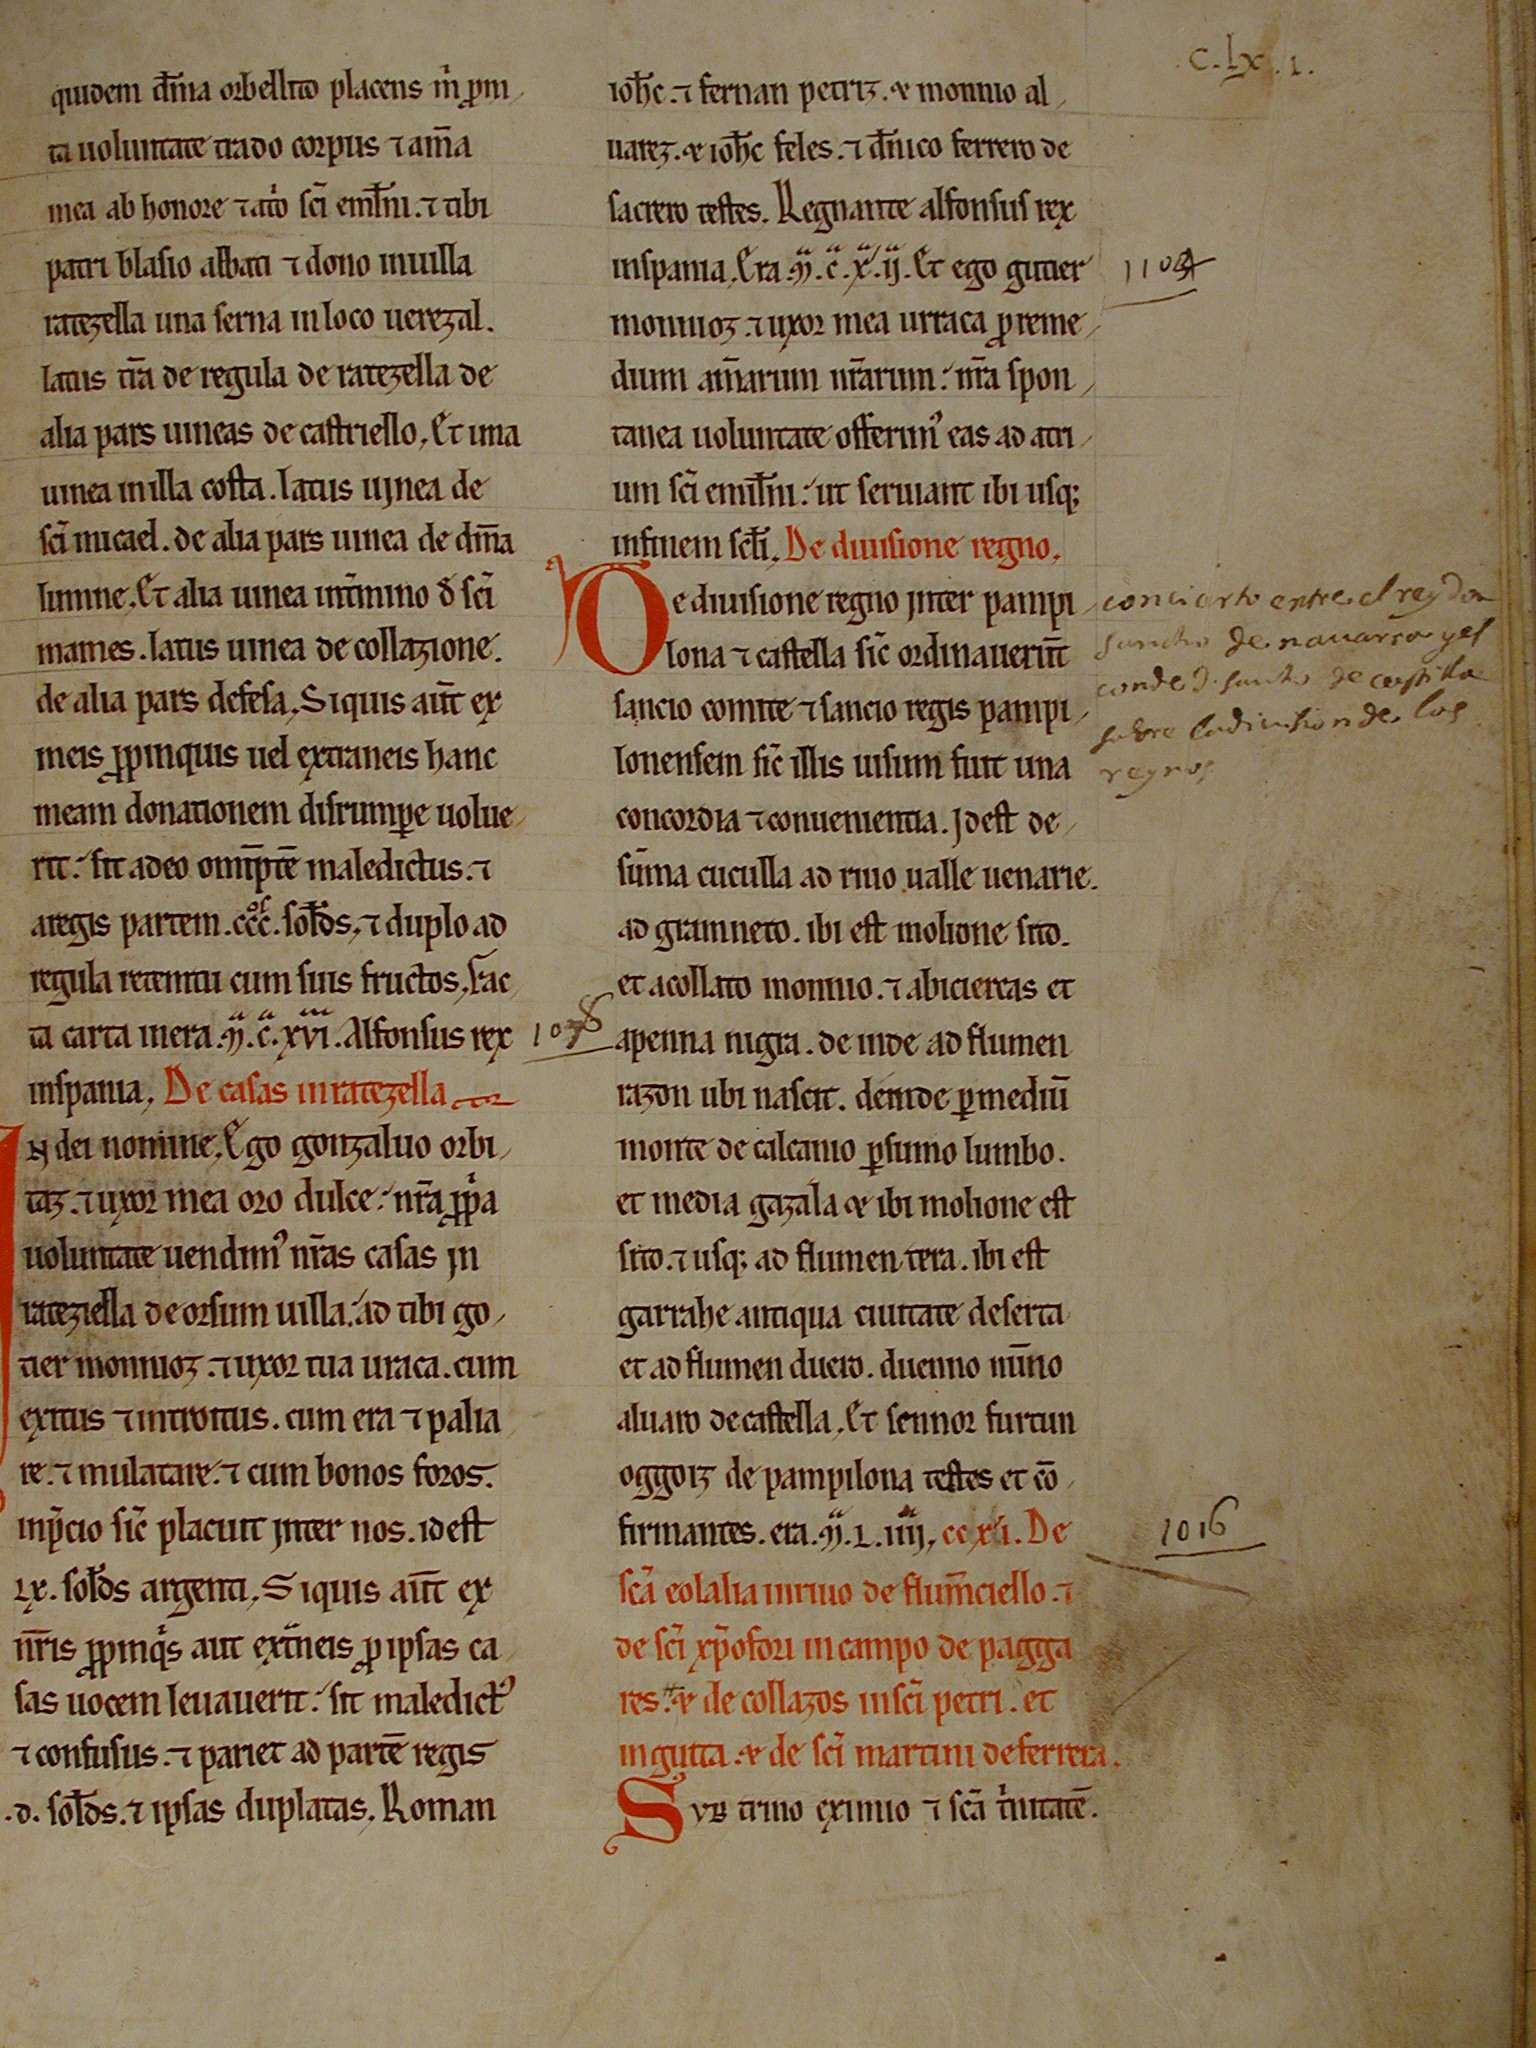 c.lx.i.
quidem dn̄na orbellito placens m̄ prom
ta uoluntate trado corpus ⁊ am̄a
mea ab honore ⁊ atrō sc̄i emlīni. ⁊ tibi
patri blasio abbati ⁊ dono in uilla
ratezella una serna in loco uerezal.
latus tr̄a de regula de ratezella de
alia pars uineas de castriello. Et una
uinea in illa costa. latus uinea de
sc̄i micael. de alia pars uinea de dm̄na
lunne. Et alia uinea in t̄mino d̄ sc̄i
mames. latus uinea de collazione.
de alia pars defesa. Si quis aut̄ ex
meis ꝓpinquis uel extraneis hanc
meam donationem disrumpe uolue
rit: sit a deo omīpt̄e maledictus. ⁊
a regis partem .ccc. solƀds. ⁊ duplo ad
regula retemtu cum suis fructos. Fac
ta carta in era .m̄.c̄.xvi. Alfonsus rex
1078
inspania. De casas in ratezella
In dei nomine. Ego gonzaluo orbi
taz. ⁊ uxor mea oro dulce: nr̄a ꝓp̄a
uoluntate uendim᾽ nr̄as casas in
rateziella deorsum uilla: ad tibi go
tier monnioz. ⁊ uxor tua uraca. cum
exitus ⁊ introitus. cum era ⁊ palia
re. ⁊ mulatare. ⁊ cum bonos foros.
in p̄cio sic̄ placuit inter nos. id est
lx. solƀds argenti. Si quis aut̄ ex
nr̄is ꝓpinq̄s aut ext̄neis ꝓ ipsas ca
sas uocem leuauerit: sit maledict᾽
⁊ confusus. ⁊ pariet ad partē regis
.d. solƀds. ⁊ ipsas duplatas. Roman
ioħc. ⁊ fernan petriz. & monnio al
uarez. & ioħc feles. ⁊ dn̄ico ferrero de
sacrero testes. Regnante alfonsus rex
inspania. Era .m̄.c̄.x̄.ij. Et ego gutier
1104
monnioz. ⁊ uxor mea urraca ꝓ reme
dium am̄arum nr̄arum: nr̄a spon
tanea uoluntate offerim᾽ eas ad atri
um sc̄i emilīni: ut seruiant ibi usq;
in finem scl̄i. De diuisione regno.
De diuisione regno inter pampi
lona ⁊ castella sic̄ ordinauerūt
sancio comite ⁊ sancio regis pampi
lonensem sic̄ illis uisum fuit una
concordia ⁊ conuenientia. Id est de
sūma cuculla ad riuo ualle uenarie.
ad gramneto. ibi est molione sito.
et a collato monnio. ⁊ a biciercas et
a penna nigra. de inde ad flumen
razon ubi nascit. deinde ꝑ mediū
monte de calcanio ꝑ sumo lumbo.
et media gazala & ibi molione est
sito. ⁊ usq; ad flumen tera. ibi est
garrahe antiqua ciuitate deserta
et ad flumen duero. duenno nūno
aluaro de castella. Et sennor furtun
oggoiz de pampilona testes et cō
firmantes. era .m̄.l.iiii. ccxi. De
1016
sc̄a eolalia in riuo de flum̄ciello. ⁊
de sc̄i xp̄ofori in campo de pagga
res. & de collazos in sc̄i petri. et
in gutta. & de sc̄i martini de ferrera.
Svb trino eximio ⁊ sc̄a t̄nitatē.
concierto entre el rey don
sancho de nauarra y el
conde d. sancho de castilla
sobre la diuision de los
reynos